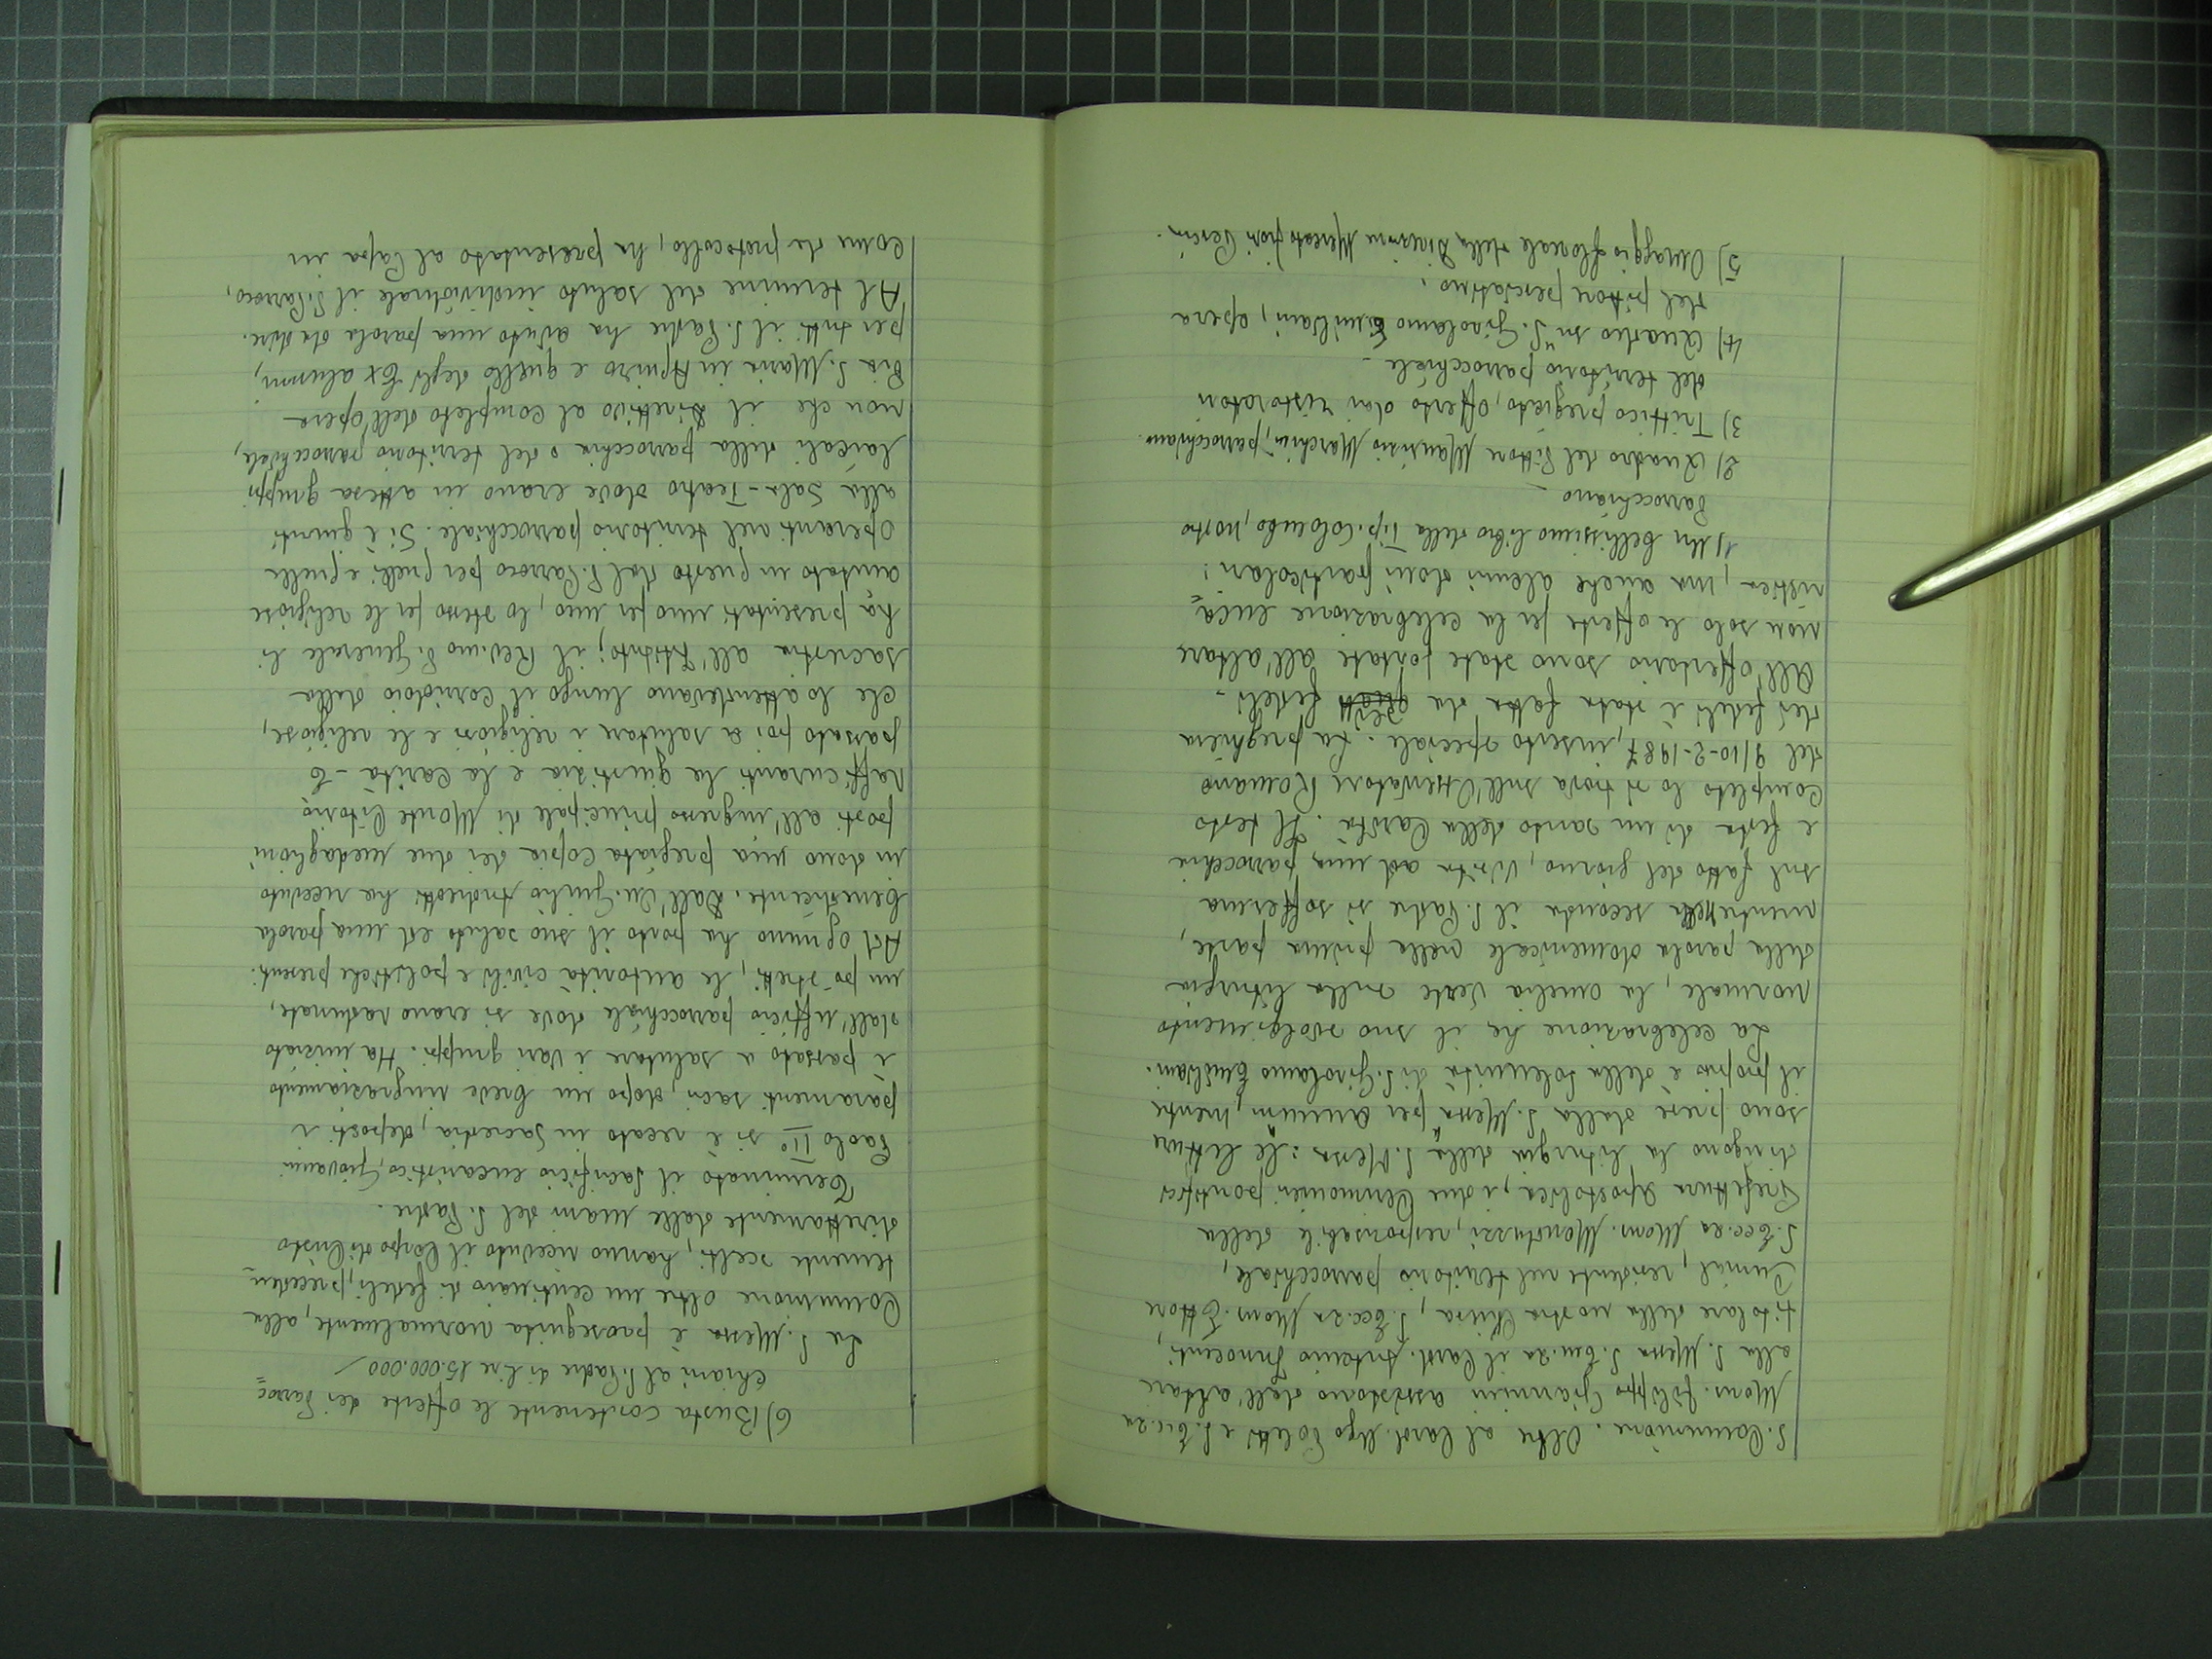 S. Comunione. Oltre al Card. Ugo Poletti e S. Ecc.za
Mons. Filippo Giannini assistono dall'altare
alla S. Messa S. Em.za il Card. Antonio Innocenti,
titolare della nostra Chiesa, S. Ecc.za Mons. Ettore
Cunial, residente nel territorio parrocchiale,
S. Ecc.za Mons. Monduzzi, responsabile della
Prefettura Apostolica, i due Cerimonieri pontifici
dirigono la liturgia della S. Messa: le letture
sono prese dalla S. Messa "per annum", mentre
il proprio è della solennità di S. Girolamo Emiliani.
La celebrazione ha il suo svolgimento
normale, la omelia verte sulla liturgia
della parola domenicale nella prima parte,
mentre nella seconda il S. Padre si sofferma
sul fatto del giorno, visita ad una parrocchia
e festa di un santo della Carità. Il testo
completo lo si trova sull'Osservatore Romano
del 9/10-2-1987, inserto speciale. La preghiera
dei fedeli è stata fatta da sei fedeli.
All'offertorio sono state portate all'altare
non solo le offerte per la celebrazione euca=
ristica, ma anche alcuni doni particolari:
1) Un bellissimo libro della Tip. Colombo, nostro
Parrocchiano
2) Quadro del Pittore Maurizio Marchini, parrocchiano.
3) Trittico pregiato, offerto dai ristoratori
del territorio parrocchiale -
4) Quadro su S. Girolamo Emiliani, opera
del pittore pesciatino.
5) Omaggio floreale della Direzione Mercato fiori Pescia.
6) Busta contenente le offerte dei Parroc=
chiani al S. Padre di Lire 15.000.000
La S. Messa è proseguita normalmente, alla
Comunione oltre un centinaio di fedeli, preceden=
temente scelti, hanno ricevuto il Corpo di Cristo
direttamente dalle mani del S. Padre.
Terminato il Sacrificio eucaristico, Giovanni
Paolo II° si è recato in Sacrestia, deposti i
paramenti sacri, dopo un breve ringraziamento
è passato a salutare i vari gruppi. Ha iniziato
dall'ufficio parrocchiale dove si erano radunate,
un po' stretti, le autorità civili e politiche presenti.
Ad ognuno ha porto il suo saluto ed una parola
benedicente. Dall'On. Giulio Andreotti ha ricevuto
in dono una pregiata copia dei due medaglioni
posti all'ingresso principale di Monte Citorio
raffiguranti la giustizia e la carità - È
passato poi a salutare i religiosi e le religiose,
che lo attendevano lungo il corridoio della
sacrestia all'Istituto; il Rev.mo P. Generale li
ha presentati uno per uno, lo stesso per le religiose
aiutato in questo dal P. Parroco per quelli e quelle
operanti nel territorio parrocchiale. Si è quindi
alla Sala-Teatro dove erano in attesa gruppi
laicali della parrocchia o del territorio parrocchiale,
non che il Direttivo al completo dell'opera
Pia S. Maria in Aquiro e quello degli Ex alunni,
per tutti il S. Padre ha avuto una parola da dire.
Al termine del saluto individuale il P. Parroco,
come da protocollo, ha presentato al Papa in